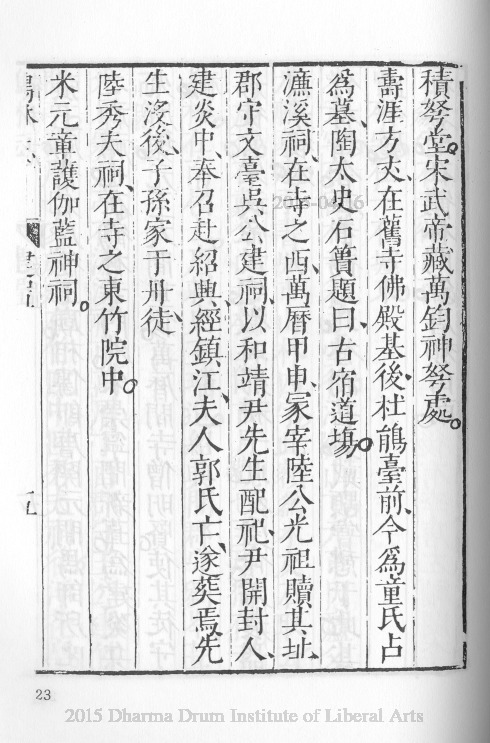 積弩堂。宋武帝藏萬鈞神弩處。
壽涯方丈、在舊寺佛殿基後、杜鵑臺前、今爲童氏占
爲墓、陶太史石簣題曰、古宿道塲。
濂溪祠、在寺之西、萬曆甲申、冢宰陸公光祖贖其址、
郡守文臺吳公建祠、以和靖尹先生配祀、尹開封人、
建炎中、奉召赴紹興、經鎮江、夫人郭氏亡、遂葬焉、先
生沒後、子孫家于丹徒、
陸秀夫祠、在寺之東竹院中。
米元章護伽藍神祠。
23
2015 Dharma Drum Institute of Liberal Arts